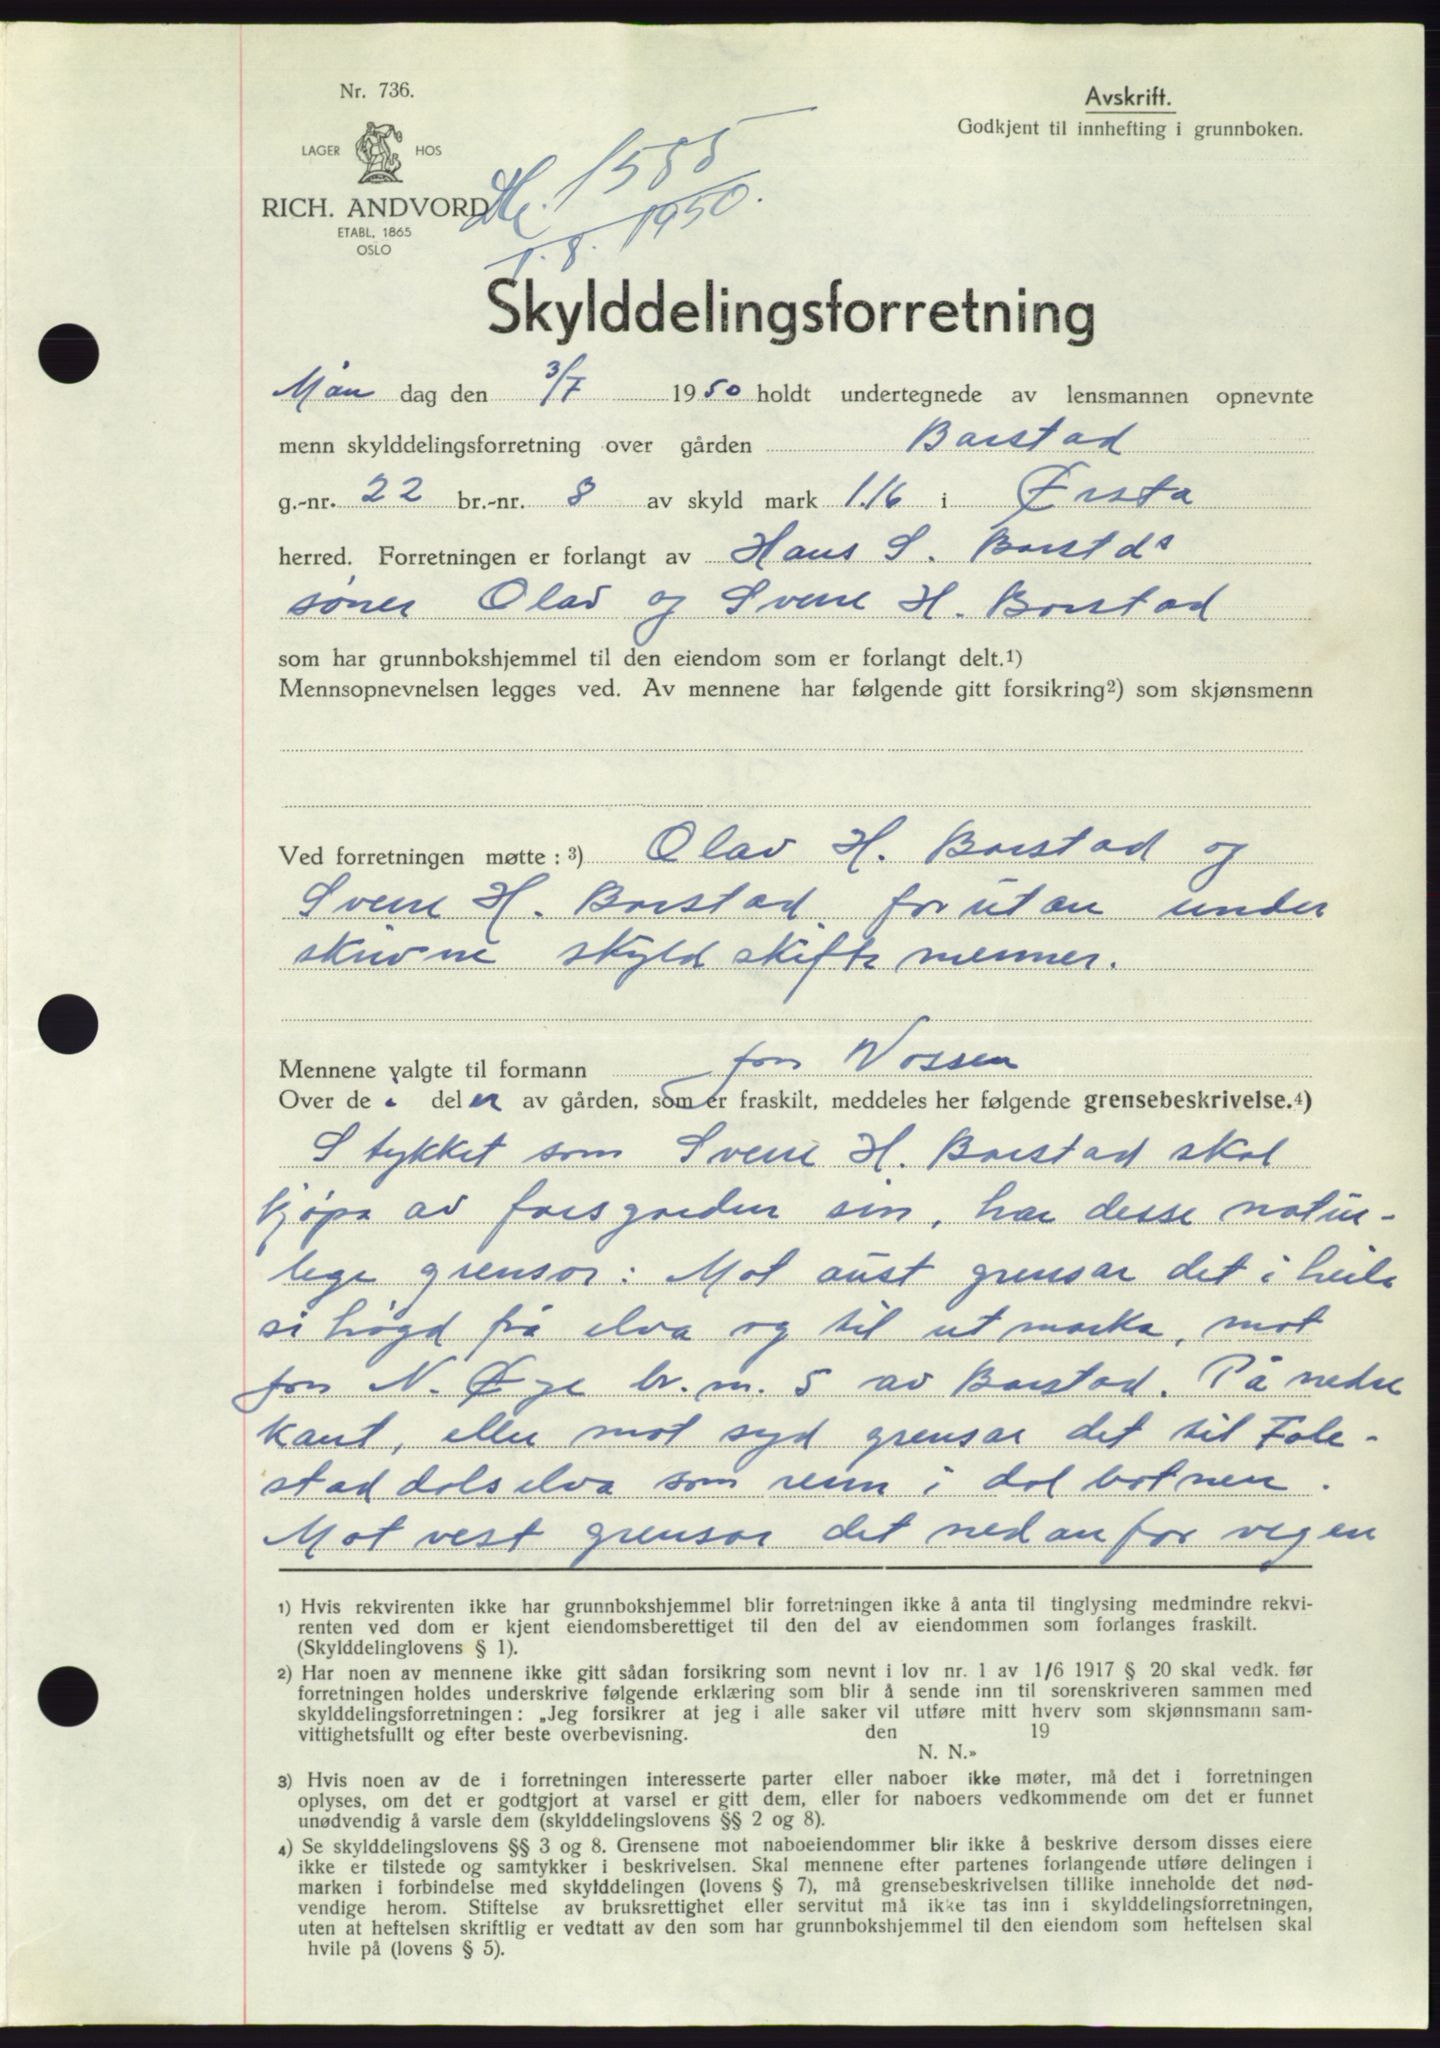 Nr. 736.
LAGER HOS
RICH. ANDVORD
ETABL. 1865
OSLO
Avskrift.
Godkjent til innhefting i grunnboken.
1585
1.8. 1950.
Skylddelingsforretning
Mån dag den 3/7 1950 holdt undertegnede av lensmannen opnevnte
menn skylddelingsforretning over gården Barstad
g.-nr. 22 br.-nr. 8 av skyld mark 1.16 i Ørsta
herred. Forretningen er forlangt av Hans S. Barstds
søner Olav og Svere H. Barstad
som har grunnbokshjemmel til den eiendom som er forlangt delt.1)
Mennsopnevnelsen legges ved. Av mennene har følgende gitt forsikring2) som skjønsmenn
Ved forretningen møtte: 3) Olav H. Barstad og
Svere H. Barstad forutan under
skrivne skyldskifte menner.
Mennene valgte til formann Jon Vossen
Over de i deler av gården, som er fraskilt, meddeles her følgende grensebeskrivelse.4)
Stykket som Svere H. Barstad skal
kjøpa av farsgarden sin, har desse natur-
lege grensor: Mot aust grensar det i heile
si høgd frå elva og til utmarka, mot
Jon N. Øye br. nr. 5 av Barstad. På nedre
kant, eller mot syd grensar det til Fole-
staddalselva som renn i dalbotnen.
Mot vest grensar det nedanfor vegen
1) Hvis rekvirenten ikke har grunnbokshjemmel blir forretningen ikke å anta til tinglysing medmindre rekvi-
renten ved dom er kjent eiendomsberettiget til den del av eiendommen som forlanges fraskilt.
(Skylddelinglovens § 1).
2) Har noen av mennene ikke gitt sådan forsikring som nevnt i lov nr. 1 av 1/6 1917 § 20 skal vedk. før
forretningen holdes underskrive følgende erklæring som blir å sende inn til sorenskriveren sammen med
skylddelingsforretningen: „Jeg forsikrer at jeg i alle saker vil utføre mitt hverv som skjønnsmann sam-
vittighetsfullt og efter beste overbevisning. den 19
N. N.»
3) Hvis noen av de i forretningen interesserte parter eller naboer ikke møter, må det i forretningen
oplyses, om det er godtgjort at varsel er gitt dem, eller for naboers vedkommende om det er funnet
unødvendig å varsle dem (skylddelingslovens §§ 2 og 8).
4) Se skylddelingslovens §§ 3 og 8. Grensene mot naboeiendommer blir ikke å beskrive dersom disses eiere
ikke er tilstede og samtykker i beskrivelsen. Skal mennene efter partenes forlangende utføre delingen i
marken i forbindelse med skylddelingen (lovens § 7), må grensebeskrivelsen tillike inneholde det nød-
vendige herom. Stiftelse av bruksrettighet eller servitut må ikke tas inn i skylddelingsforretningen,
uten at heftelsen skriftlig er vedtatt av den som har grunnbokshjemmel til den eiendom som heftelsen skal
hvile på (lovens § 5).